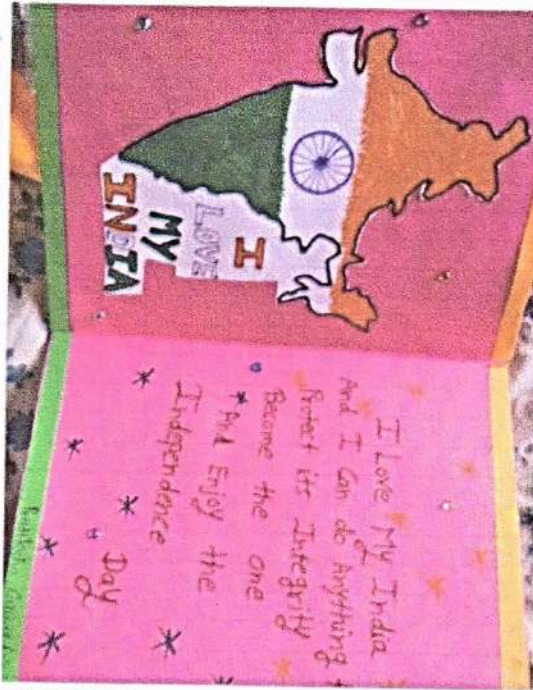 I
LOVE
MY
INDIA
I Love My India
And I Can do Anything
Protect its Integrity
Become the one
And Enjoy the
Independence
Day